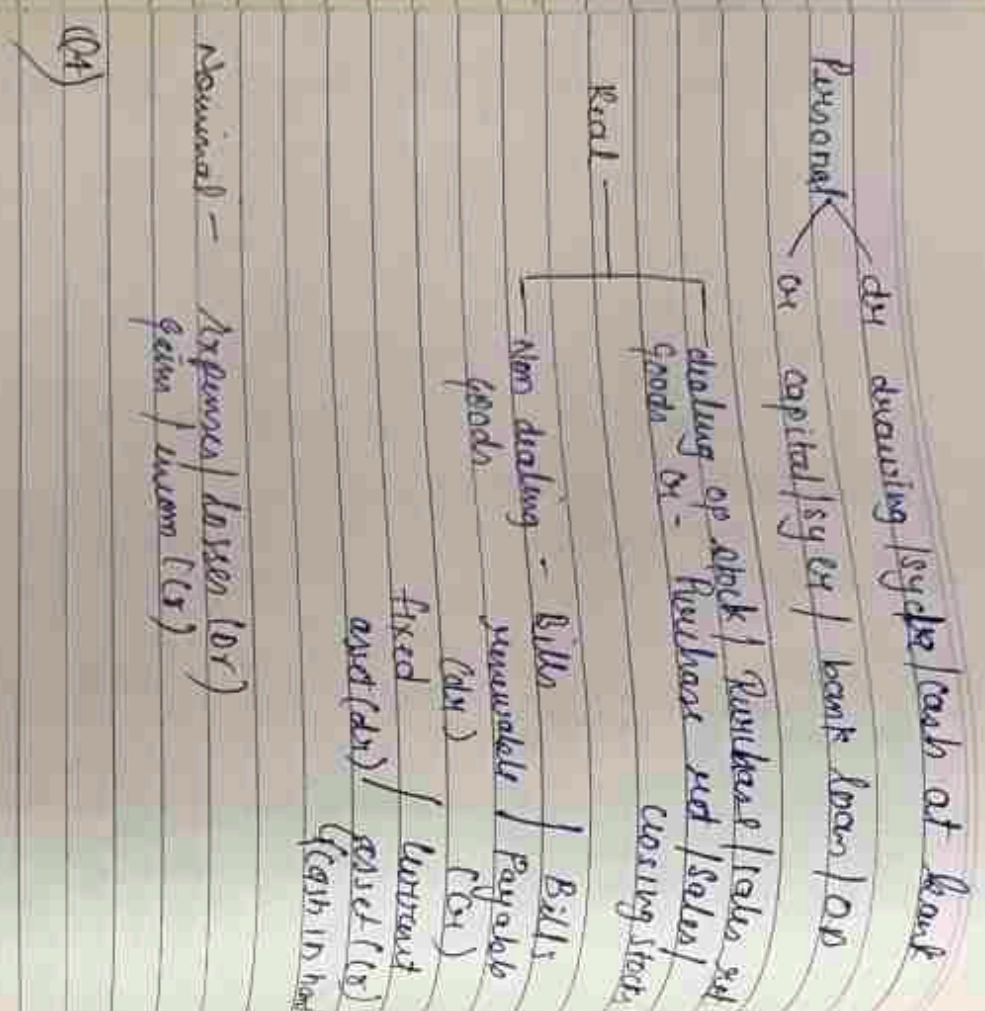 dr drawing/sydr/cash at bank
Personal
cr capital/sy cr/ bank loan/OD
dealing op stock/ Purchase/sales ret
Goods cr - Purchase ret/Sales/
closing stock
Real
Non dealing - Bills / Bills
goods receivable / Payable
(dr) (cr)
fixed / Current
asset (dr) / asset (cr)
(cash in hand
Nominal - Expenses/losses (Dr)
gain/incom (Cr)
(Q4)